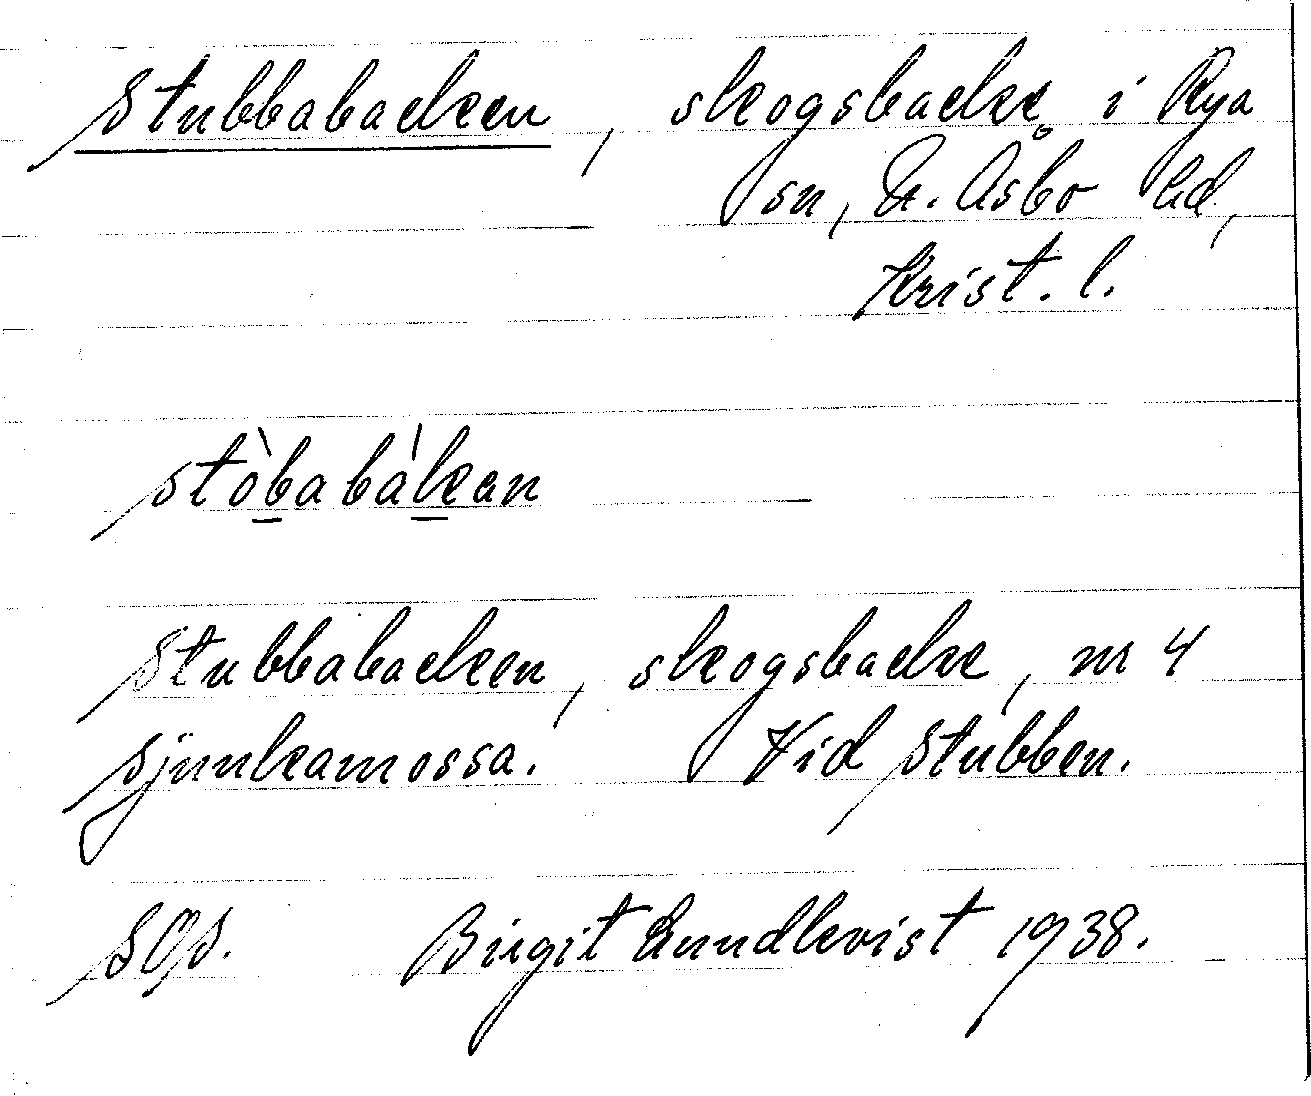 Stubbabacken, skogsbacke i Rya
sn, N. Åsbo hd,
Krist. l.
stòbabàkan
Stubbabacken, skogsbacke, nr 4
Sjunkamossa. Vid Stubben.
SOs. Birgit Lundkvist 1938.